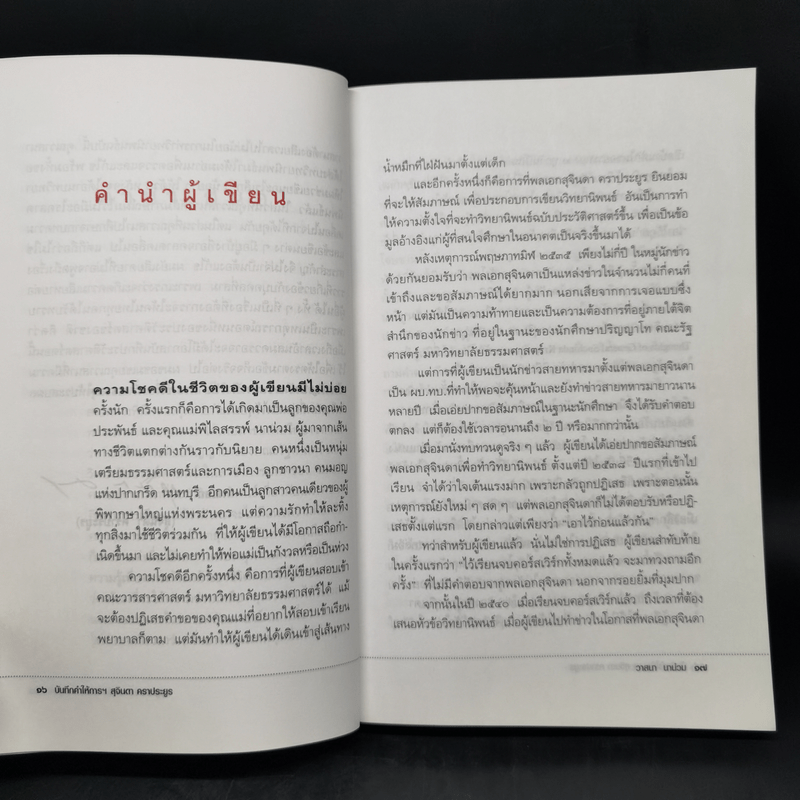 คำนำผู้เขียน
ความโชคดีในชีวิตของผู้เขียนมีไม่บ่อย
ครั้งนัก ครั้งแรกก็คือการได้เกิดมาเป็นลูกของคุณพ่อ
ประพันธ์ และคุณแม่พิไลสรรพ์ นาน่วม ผู้มาจากเส้น
ทางชีวิตแตกต่างกันราวกับนิยาย คนหนึ่งเป็นหนุ่ม
เตรียมธรรมศาสตร์และการเมือง ลูกชาวนา คนมอญ
แห่งปากเกร็ด นนทบุรี อีกคนเป็นลูกสาวคนเดียวของผู้
พิพากษาใหญ่แห่งพระนคร แต่ความรักทำให้ละทิ้ง
ทุกสิ่งมาใช้ชีวิตร่วมกัน ที่ให้ผู้เขียนได้มีโอกาสถือกำ-
เนิดขึ้นมา และไม่เคยทำให้พ่อแม่เป็นกังวลหรือเป็นห่วง
ความโชคดีอีกครั้งหนึ่ง คือการที่ผู้เขียนสอบเข้า
คณะวารสารศาสตร์ มหาวิทยาลัยธรรมศาสตร์ได้ แม้
จะต้องปฏิเสธคำขอของคุณแม่ที่อยากให้สอบเข้าเรียน
พยาบาลก็ตาม แต่มันทำให้ผู้เขียนได้เดินเข้าสู่เส้นทาง
๑๖ บันทึกคำให้การฯ สุจินดา คราประยูร
น้ำหมึกที่ใฝ่ฝันมาตั้งแต่เด็ก
และอีกครั้งหนึ่งก็คือการที่พลเอกสุจินดา คราประยูร ยินยอม
ที่จะให้สัมภาษณ์ เพื่อประกอบการเขียนวิทยานิพนธ์ อันเป็นการทำ
ให้ความตั้งใจที่จะทำวิทยานิพนธ์ฉบับประวัติศาสตร์ขึ้น เพื่อเป็นข้อ
มูลอ้างอิงแก่ผู้ที่สนใจศึกษาในอนาคตเป็นจริงขึ้นมาได้
หลังเหตุการณ์พฤษภาทมิฬ ๒๕๓๕ เพียงไม่กี่ปี ในหมู่นักข่าว
ด้วยกันยอมรับว่า พลเอกสุจินดาเป็นแหล่งข่าวในจำนวนไม่กี่คนที่
เข้าถึงและขอสัมภาษณ์ได้ยากมาก นอกเสียจากการเจอแบบซึ่ง
หน้า แต่มันเป็นความท้าทายและเป็นความต้องการที่อยู่ภายใต้จิต
สำนึกของนักข่าว ที่อยู่ในฐานะของนักศึกษาปริญญาโท คณะรัฐ
ศาสตร์ มหาวิทยาลัยธรรมศาสตร์
แต่การที่ผู้เขียนเป็นนักข่าวสายทหารมาตั้งแต่พลเอกสุจินดา
เป็น ผบ.ทบ.ที่ทำให้พอจะคุ้นหน้าและยังทำข่าวสายทหารมายาวนาน
หลายปี เมื่อเอ่ยปากขอสัมภาษณ์ในฐานะนักศึกษา จึงได้รับคำตอบ
ตกลง แต่ก็ต้องใช้เวลารอนานถึง ๒ ปี หรือมากกว่านั้น
เมื่อมานั่งทบทวนดูจริง ๆ แล้ว ผู้เขียนได้เอ่ยปากขอสัมภาษณ์
พลเอกสุจินดาเพื่อทำวิทยานิพนธ์ ตั้งแต่ปี ๒๕๓๘ ปีแรกที่เข้าไป
เรียน จำได้ว่าใจเต้นแรงมาก เพราะกลัวถูกปฏิเสธ เพราะตอนนั้น
เหตุการณ์ยังใหม่ ๆ สด ๆ แต่พลเอกสุจินดาก็ไม่ได้ตอบรับหรือปฏิ-
เสธตั้งแต่แรก โดยกล่าวแต่เพียงว่า "เอาไว้ก่อนแล้วกัน"
ทว่าสำหรับผู้เขียนแล้ว นั่นไม่ใช่การปฏิเสธ ผู้เขียนสำทับท้าย
ในครั้งแรกว่า "ไว้เรียนจบคอร์สเวิร์กทั้งหมดแล้ว จะมาทวงถามอีก
ครั้ง" ที่ไม่มีคำตอบจากพลเอกสุจินดา นอกจากรอยยิ้มที่มุมปาก
จากนั้นในปี ๒๕๔๐ เมื่อเรียนจบคอร์สเวิร์กแล้ว ถึงเวลาที่ต้อง
เสนอหัวข้อวิทยานิพนธ์ เมื่อผู้เขียนไปทำข่าวในโอกาสที่พลเอกสุจินดา
วาสนา นาน่วม ๑๗